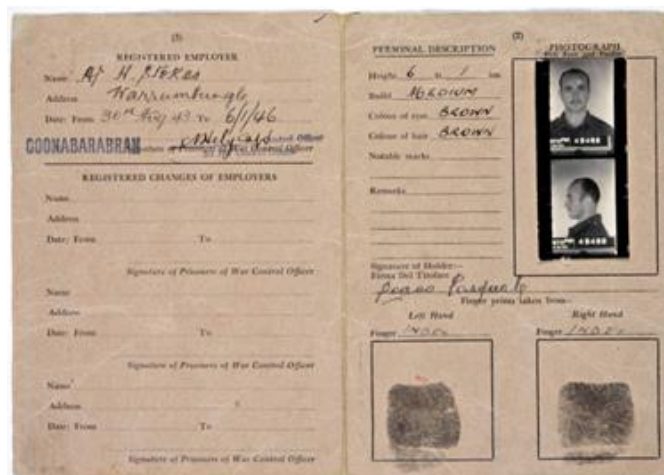 (3)
REGISTERED EMPLOYER
Name H. Stokes
Address Warrumbungle
Date: From 30th Aug 43 To 6/1/46
COONABARABRAN
Signature of Prisoners of War Control Officer
REGISTERED CHANGES OF EMPLOYERS
Name
Address
Date: From To
Signature of Prisoners of War Control Officer
Name
Address
Date: From To
Signature of Prisoners of War Control Officer
Name
Address
Date: From To
Signature of Prisoners of War Control Officer
(2)
PERSONAL DESCRIPTION
Height 6 ft 1 ins
Build MEDIUM
Colour of eyes BROWN
Colour of hair BROWN
Notable marks
Remarks
PHOTOGRAPH
Full Face and Profile
Signature of Holder:—
Firma Del Titolare
Finger prints taken from—
Left Hand
Finger INDEX
Right Hand
Finger INDEX